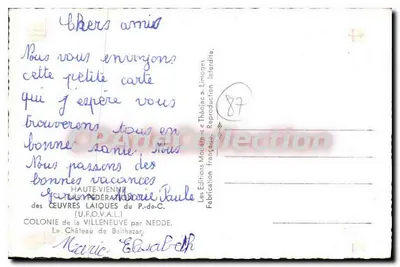 Chers amis
Nous vous envoyons
cette petite carte
qui j'espère vous
trouverons tous en
bonne santé. Nous
Nous passons des
bonnes vacances
Marie Paule
HAUTE-VIENNE
des ŒUVRES LAIQUES du P.-de-C.
(U.F.O.V.A.L.)
COLONIE de la VILLENEUVE par NEDDE.
Le Château de Balthazar.
Marie Elisabeth
Les Editions Modernes « Théojac », Limoges
Fabrication française. Reproduction interdite.
87